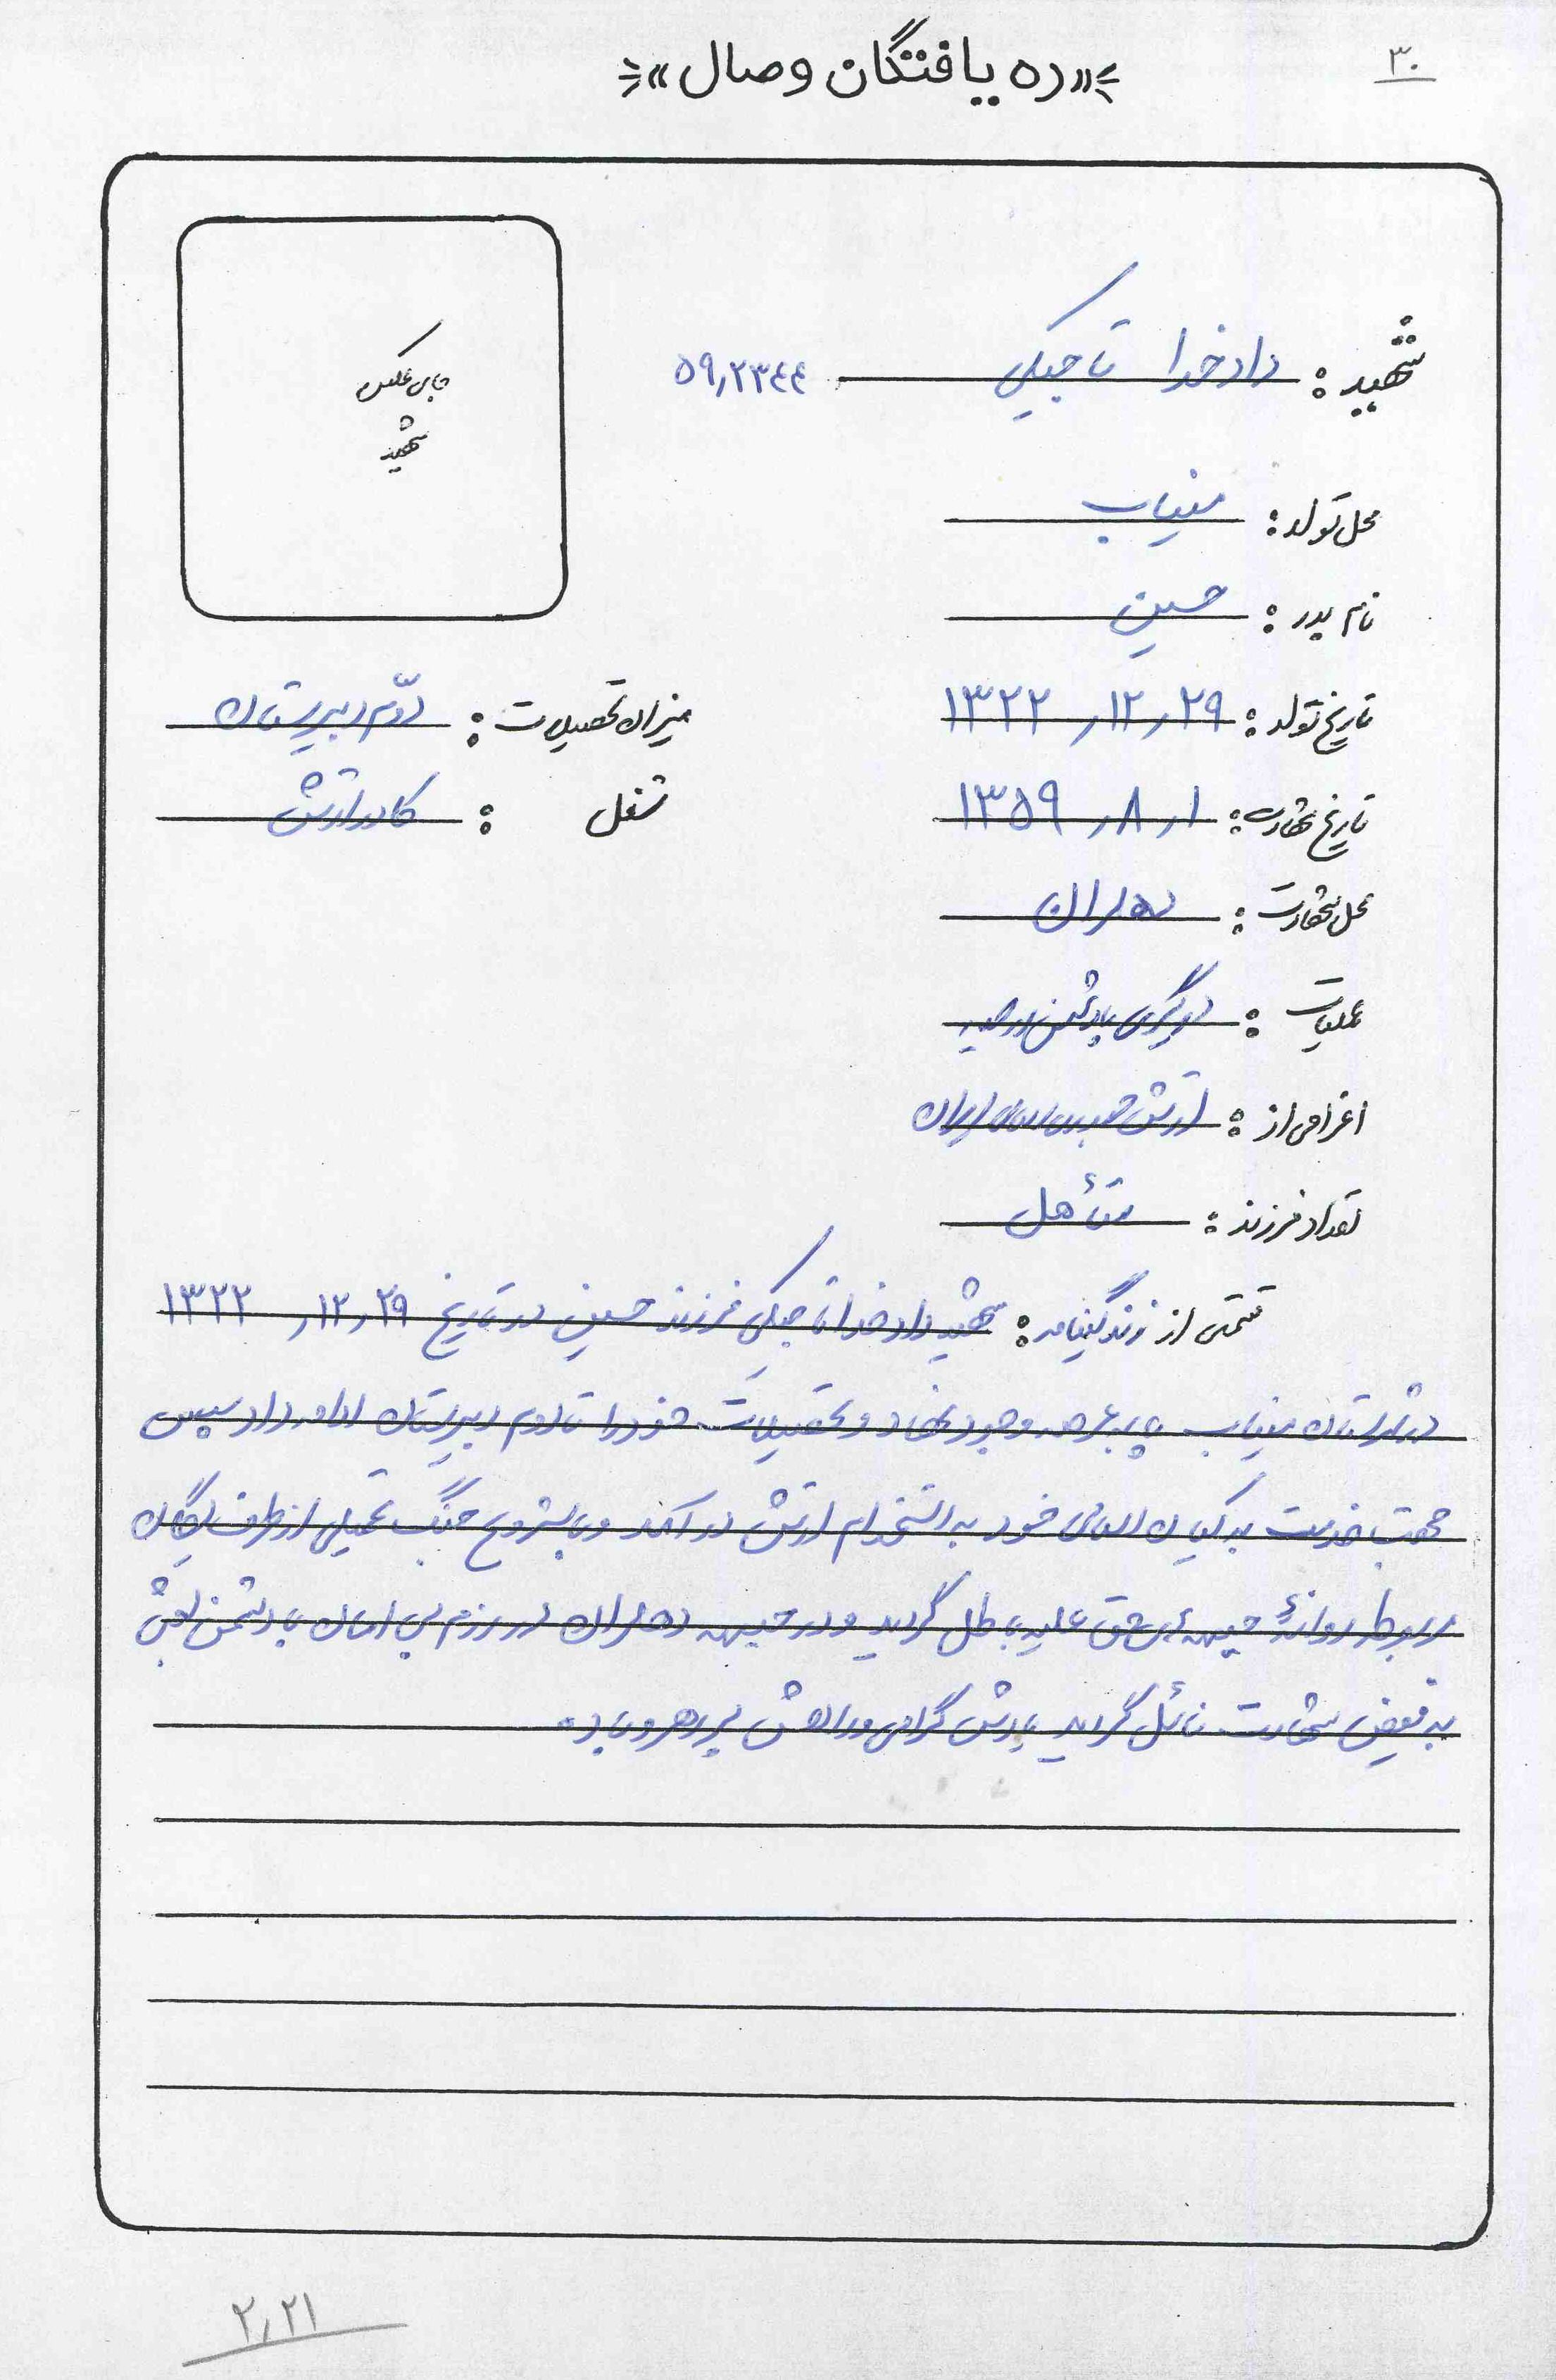 ۳۰
«ره یافتگان وصال»
شهید : دادخدا تاجیکی ۵۹٫۲۳٤٤
جای عکس
شهید
محل تولد : میناب
نام پدر : حسین
تاریخ تولد : ۲۹ ر ۱۲ ر ۱۳۲۲ میزان تحصیلات : دوّم دبیرستان
تاریخ شهادت : ۱ ر ۸ ر ۱۳۵۹ شغل : کادر ارتش
محل شهادت : دهلران
عملیات : درگیری با دشمن در جبهه
اعزامی از : ارتش جمهوری اسلامی ایران
تعداد فرزند : متأهل
قسمتی از زندگینامه : شهید دادخدا تاجیکی فرزند حسین در تاریخ ۲۹ ر ۱۲ ر ۱۳۲۲
در شهرستان میناب پا به عرصه وجود نهاد و تحصیلات خود را تا دوم دبیرستان ادامه داد سپس
جهت خدمت به کیان اسلامی خود به استخدام ارتش در آمد و با شروع جنگ تحمیلی از طرف یگان
مربوطه روانهٔ جبهه ی حق علیه باطل گردید و در جبهه دهلران در رزم بی امان با دشمن بعثی
به فیض شهادت نائل گردید یادش گرامی و راهش پر رهرو باد.
۲٫۲۱